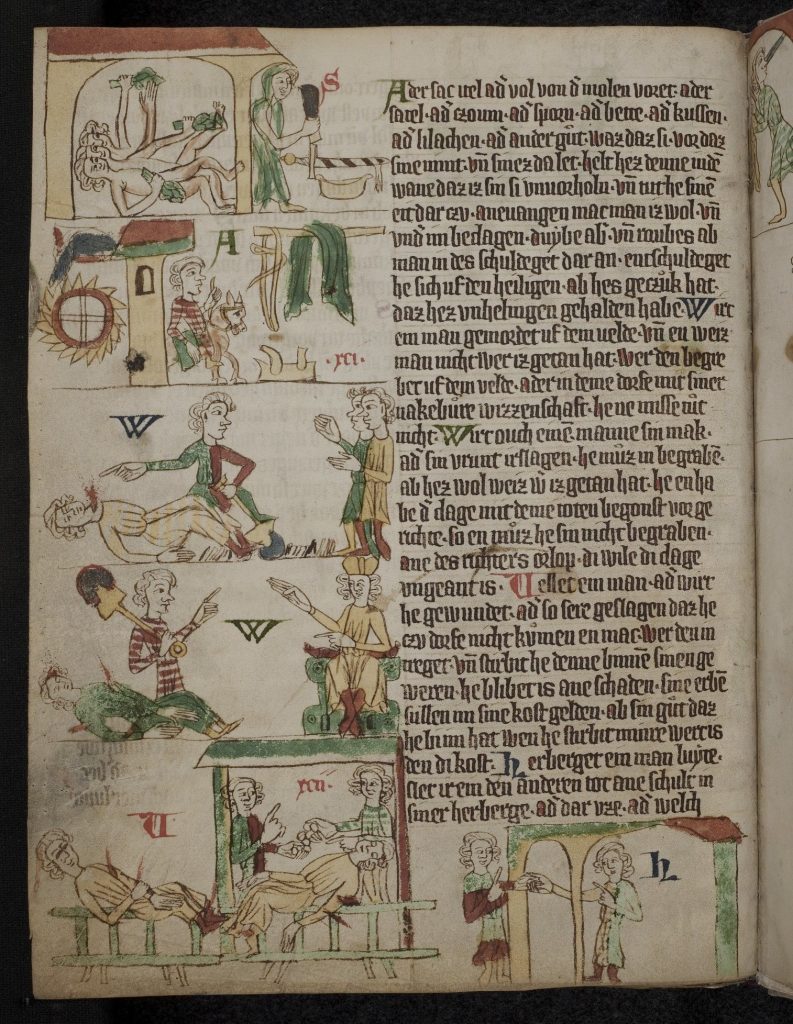 S
A
.xci.
W
W
xcii.
U
h
Ader sac uel ad vol von d molen voret. ader
satel. ad czoum. ad sporn. ad bette. ad kussen.
ad lilachen. ad ander gut. waz daz si. vor daz
sine nimt. vn sinez da let. helt hez denne in de
wane daz iz sin si vnuorholn. vn tut he sine
eit dar czv. aneuangen mac man iz wol. vn
vnd im bedagen. duybe ab. vn roubes ab
man in des schuldeget dar an. entschuldeget
he sich uf den heiligen. ab hes geczuk hat.
daz hez vnhelingen gehalden habe. Wirt
em man gemordet uf dem uelde. vn en weiz
man nicht wer iz getan hat. wer den begre
bet uf dem velde. ader in deme dorfe mit siner
nakebure wizzenschaft. he ne misse tut
nicht. Wirt ouch eine manne sin mak.
ad sin vrunt irslagen. he muz in begrabe.
ab hez wol weiz w iz getan hat. he en ha
be d dage mit deme toten begonst vor ge
richte. so en muz he sin nicht begraben.
ane des richters orlop. di wile di dage
vngeant is. Uellet em man. ad wirt
he gewundet. ad so sere geslagen daz he
czv dorfe nicht kumen en mac. wer den in
treget. vn stirbit he denne binne sinen ge
weren. he blibet is ane schaden. sine erbe
sullen im sine kost gelden. ab sin gut daz
he bi im hat wen he stirbit minre wert is
den di kost. herberget em man luyte.
slet ir em den anderen tot ane schult in
siner herberge. ad dar vze. ad welch